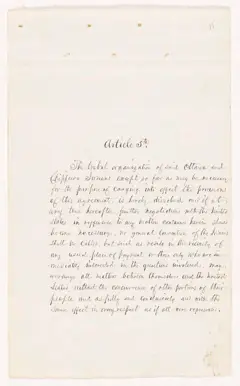 Article 5th.
The tribal organization of said Ottawa and
Chippewa Indians except so far as may be necessary
for the purpose of carrying into effect the provisions
of this agreement, is hereby dissolved and if at
any time hereafter, further negotiations with the United
States in reference to any matters contained herein should
become necessary, no general convention of the Indians
shall be called, but such as reside in the vicinity of
any usual place of payment or those only who are im-
mediately interested in the questions involved may
arrange all matters between themselves and the United
States without the concurrence of other portions of their
people and as fully and conclusively and with the
same effect in every respect as if all were represented.